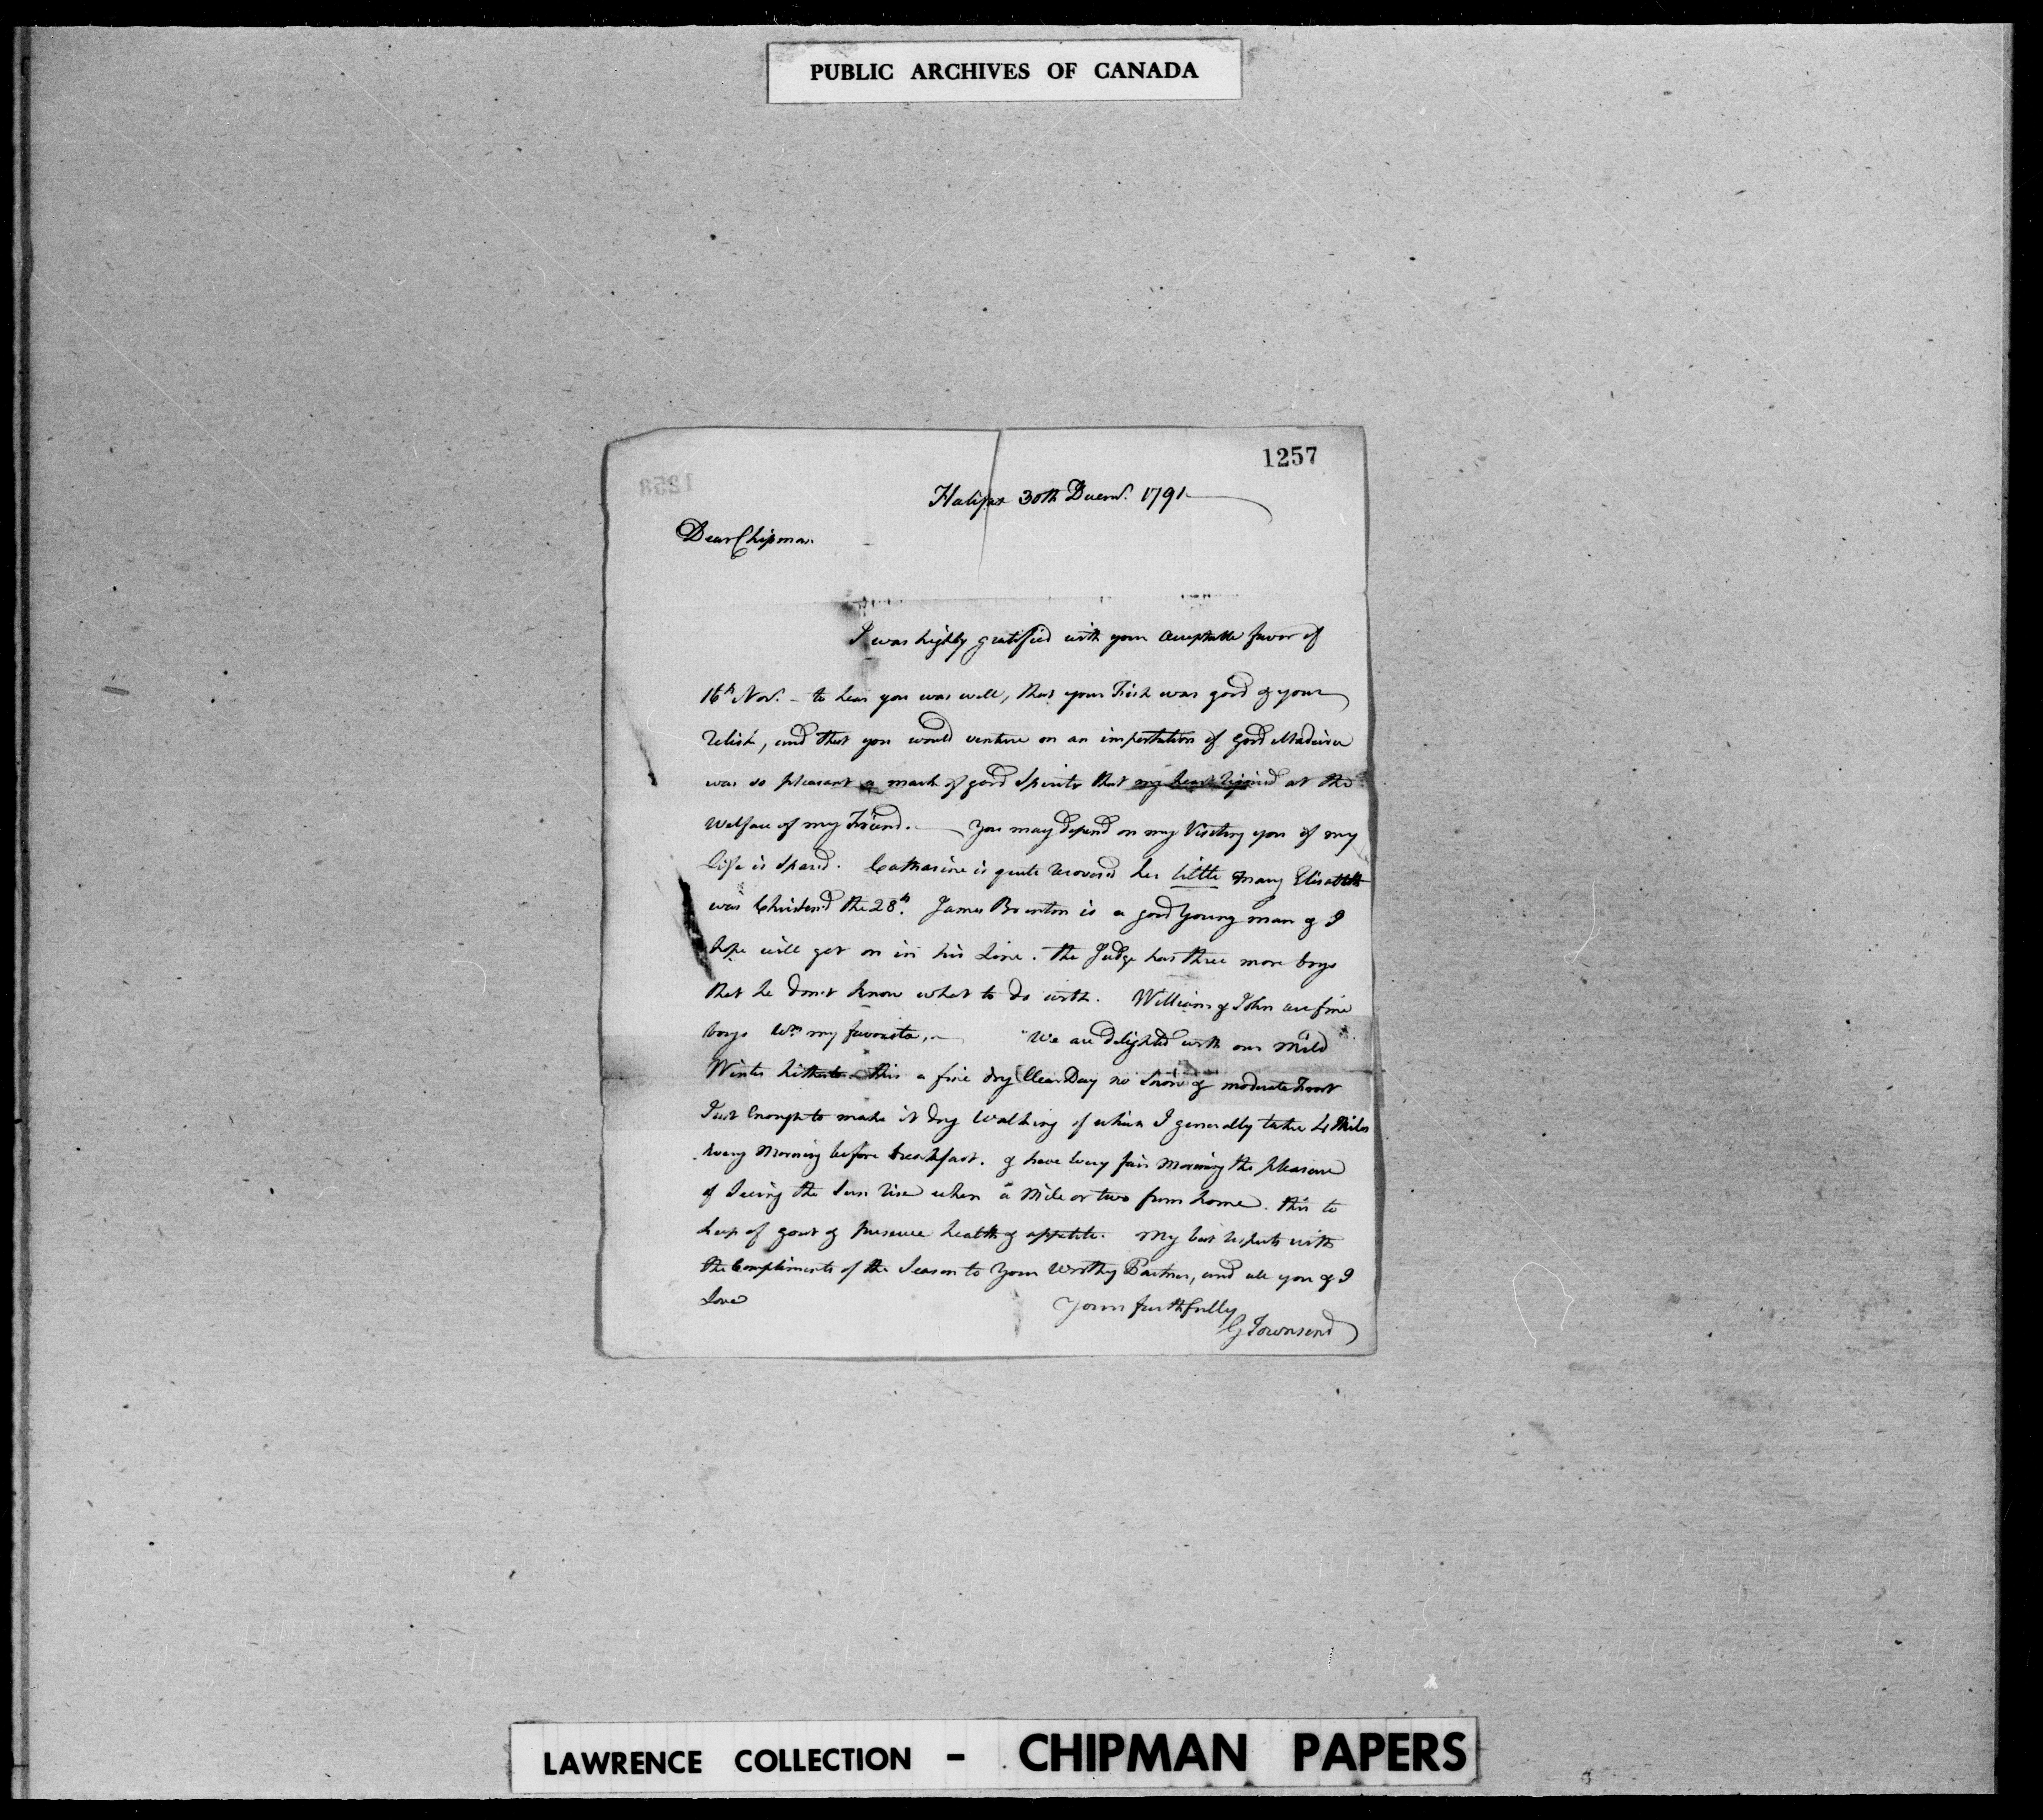 PUBLIC ARCHIVES OF CANADA
1257
Halifax 30th Decemr. 1791
Dear Chipman
I was highly gratified with your acceptable favor of
16th Novr. - to hear you was well, that your Fish was good & your
relish, and that you would venture on an importation of good Madeira
was so pleasant a mark of good Spirits that my heart rejoiced at the
Welfare of my Friend. — You may depend on my Visiting you if my
life is spared. Catharine is quite recovered her little Mary Elisabeth
was Christend the 28th. James Brenton is a good Young man & I
hope will get on in his Line. the Judge has three more boys
that he don't know what to do with. William & John are fine
boys Wm my favorite, — We are delighted with our mild
Winter hitherto this a fine dry Clear Day no Snow & moderate Frost
Just Enough to make it dry Walking of which I generally take 4 Miles
every Morning before breakfast. & have every fair Morning the pleasure
of Seeing the Sun rise when a Mile or two from home. this to
keep of gout & preserve health & appetite. My best respects with
the Compliments of the Season to Your Worthy Partner, and all you & I
Love
Yours faithfully
G Townsend
LAWRENCE COLLECTION - CHIPMAN PAPERS